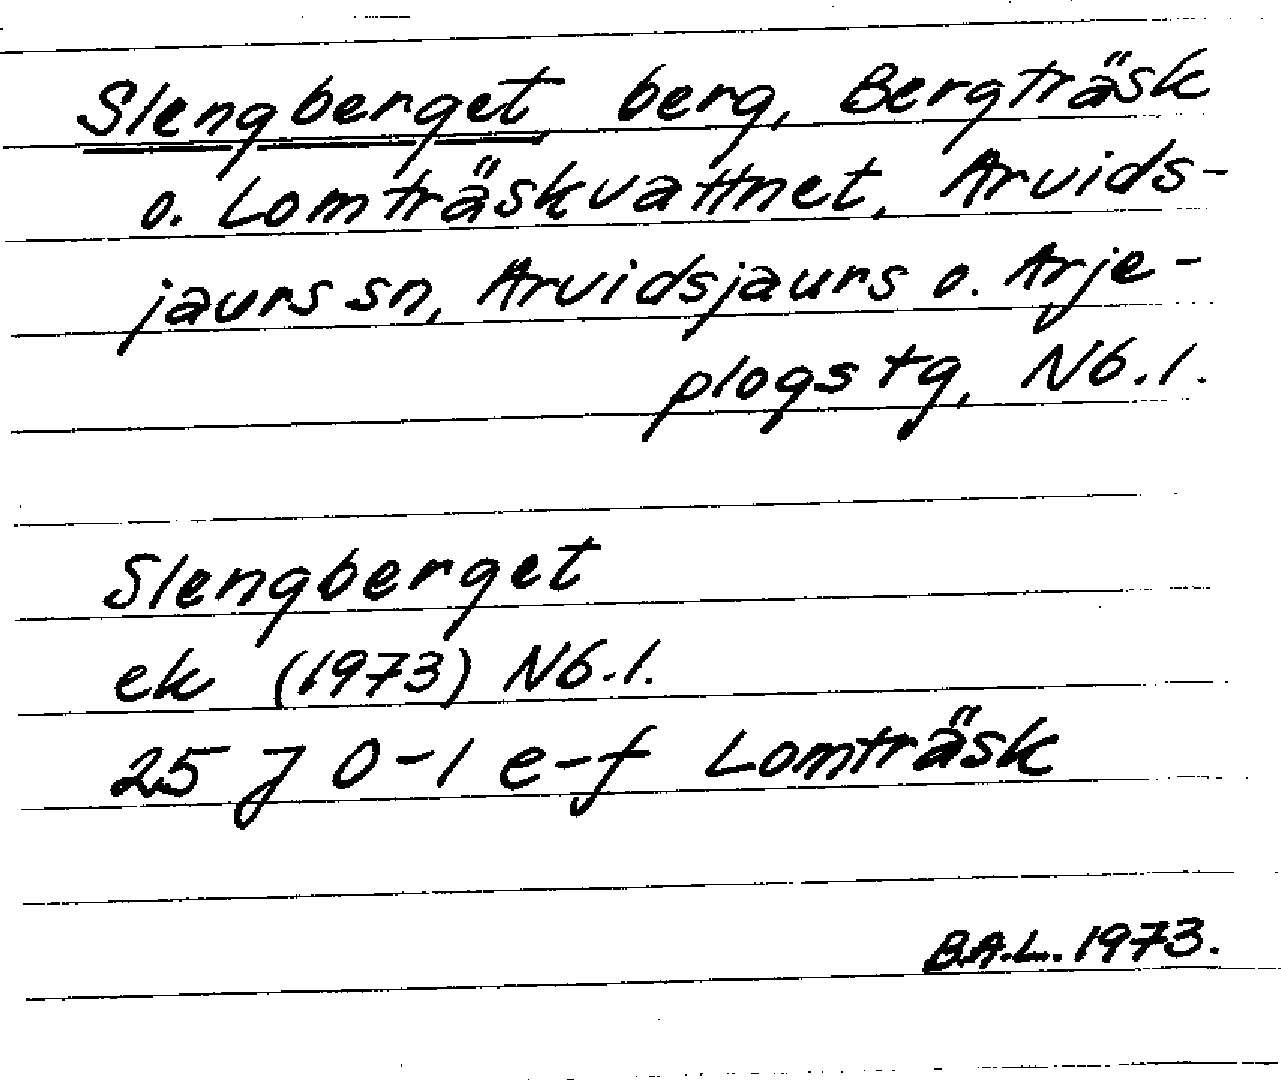 Slengberget, berg, Bergträsk
o. Lomträskvattnet, Arvids-
jaurs sn, Arvidsjaurs o. Arje-
plogs tg, Nb.l.
Slengberget
ek (1973) Nb.l.
25 J 0-1 e-f Lomträsk
B.A.L. 1973.